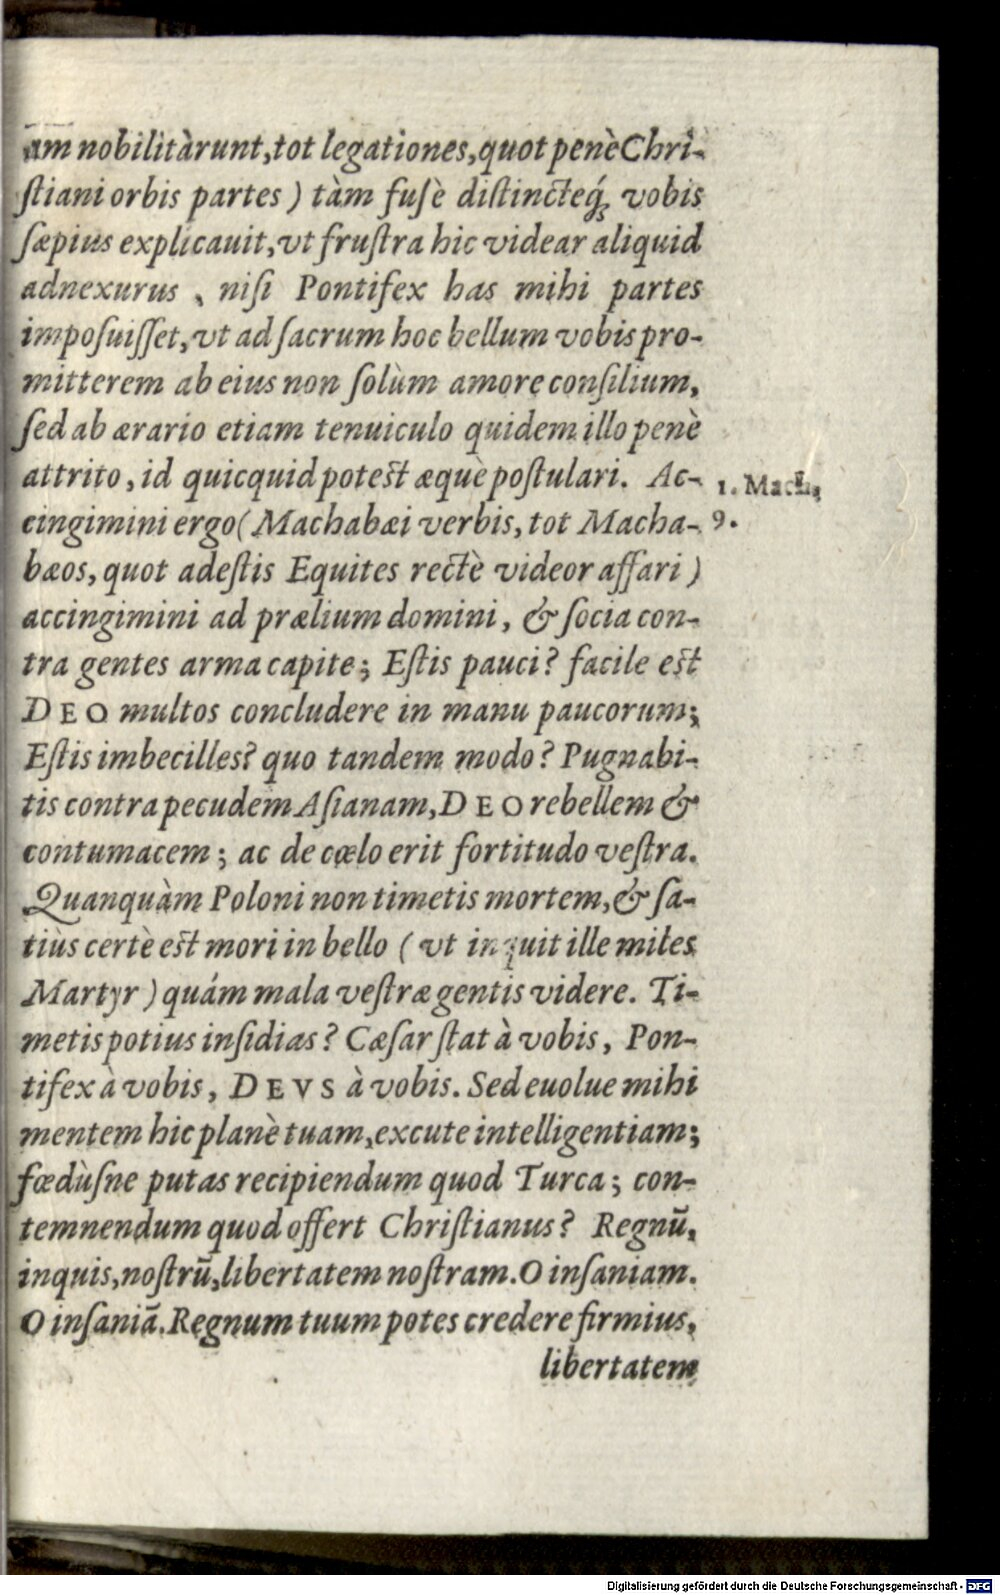 am nobilitàrunt, tot legationes, quot penè Chri-
ſtiani orbis partes) tàm fuſè diſtincteq́; vobis
ſæpius explicauit, vt fruſtra hic videar aliquid
adnexurus, niſi Pontifex has mihi partes
impoſuiſſet, vt ad ſacrum hoc bellum vobis pro-
mitterem ab eius non ſolùm amore conſilium,
ſed ab ærario etiam tenuiculo quidem illo penè
attrito, id quicquid potest æquè poſtulari. Ac-
cingimini ergo (Machabæi verbis, tot Macha-
bæos, quot adeſtis Equites rectè videor affari)
accingimini ad prælium domini, & ſocia con-
tra gentes arma capite; Eſtis pauci? facile est
DEO multos concludere in manu paucorum;
Eſtis imbecilles? quo tandem modo? Pugnabi-
tis contra pecudem Aſianam, DEO rebellem &
contumacem; ac de cœlo erit fortitudo veſtra.
Quanquàm Poloni non timetis mortem, & ſa-
tiùs certè est mori in bello (vt inquit ille miles
Martyr) quám mala veſtræ gentis videre. Ti-
metis potius inſidias? Cæſar ſtat à vobis, Pon-
tifex à vobis, DEVS à vobis. Sed euolue mihi
mentem hic planè tuam, excute intelligentiam;
fœdùſne putas recipiendum quod Turca; con-
temnendum quod offert Chriſtianus? Regnū,
inquis, noſtrū, libertatem noſtram. O inſaniam.
O inſaniā. Regnum tuum potes credere firmius,
libertatem
1. Mach.
9.
Digitalisierung gefördert durch die Deutsche Forschungsgemeinschaft - DFG